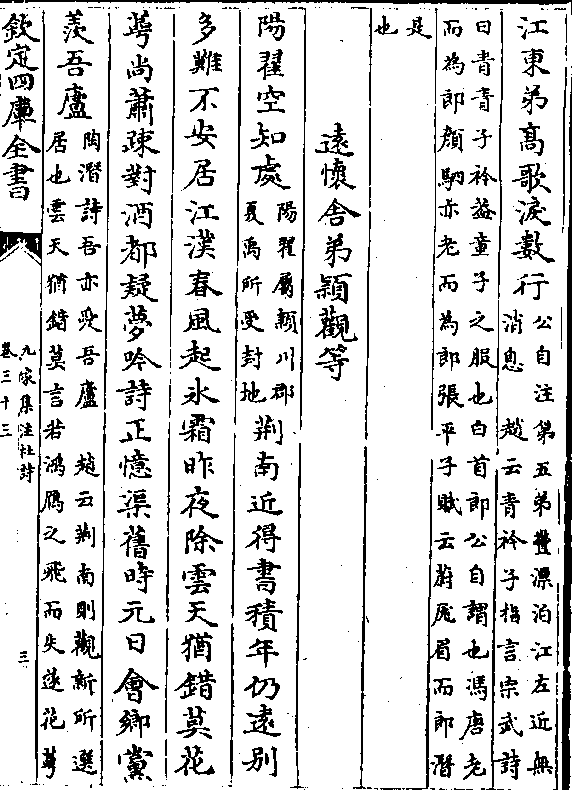 江東弟髙歌淚數行公自注第五弟豐漂泊江左近無
消息　趙云青衿子指言宗武詩
曰青青子衿葢童子之服也白首郎公自謂也馮唐老
而為郎顔駟亦老而為郎張平子賦云蔚尨眉而郎潛
是
也
遠懷舍弟頴觀等
陽翟空知處陽翟屬頴川郡
夏禹所受封地
荆南近得書積年仍遠别
多難不安居江漢春風起氷霜昨夜除雲天猶錯莫花
蕚尚蕭踈對酒都疑夢吟詩正憶渠舊時元日㑹鄉黨
羡吾廬陶潛詩吾亦愛吾廬　趙云荆南則觀新所選
居也雲天猶錯莫言若鴻鴈之飛而失花蕚
欽定四庫全書
九家集注杜詩
卷三十三
三